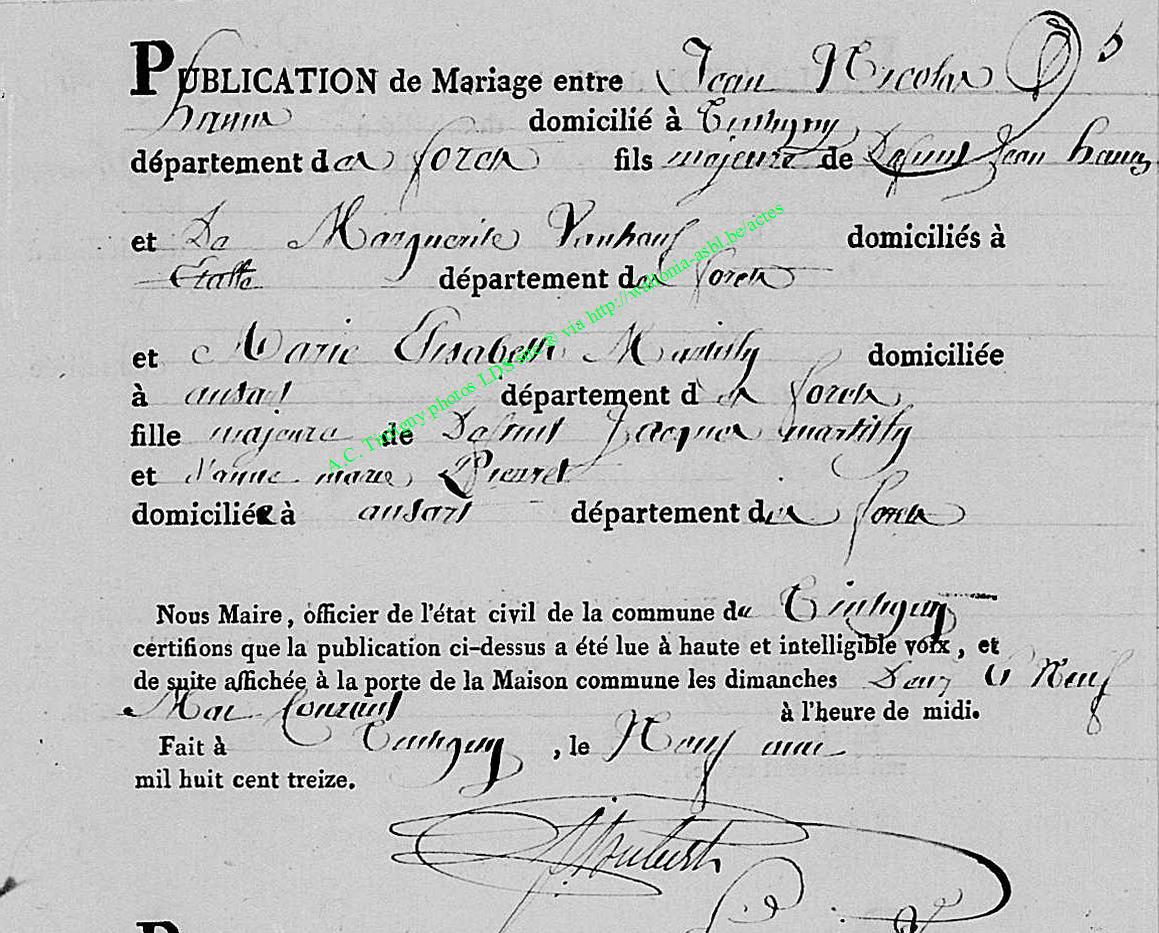 PUBLICATION de Mariage entre Jean Nicolas
hanus domicilié à Tintigny
département des forets fils majeure de Defunt Jean hanus
et De Marguerite Vanhauf domiciliés à
Etalle département des forets
et Marie Elisabeth Martilly domiciliée
à ansart département des forets
fille majeure de Defunt Jacques martilly
et d'anne marie Pierret
domiciliée à ansart département des forets
Nous Maire, officier de l'état civil de la commune de Tintigny
certifions que la publication ci-dessus a été lue à haute et intelligible voix, et
de suite affichée à la porte de la Maison commune les dimanches Deux & Neuf
Mai Courant à l'heure de midi.
Fait à Tintigny, le Neuf mai
mil huit cent treize.
A.C. Tintigny photos LDS via http://wallonia-asbl.be/actes